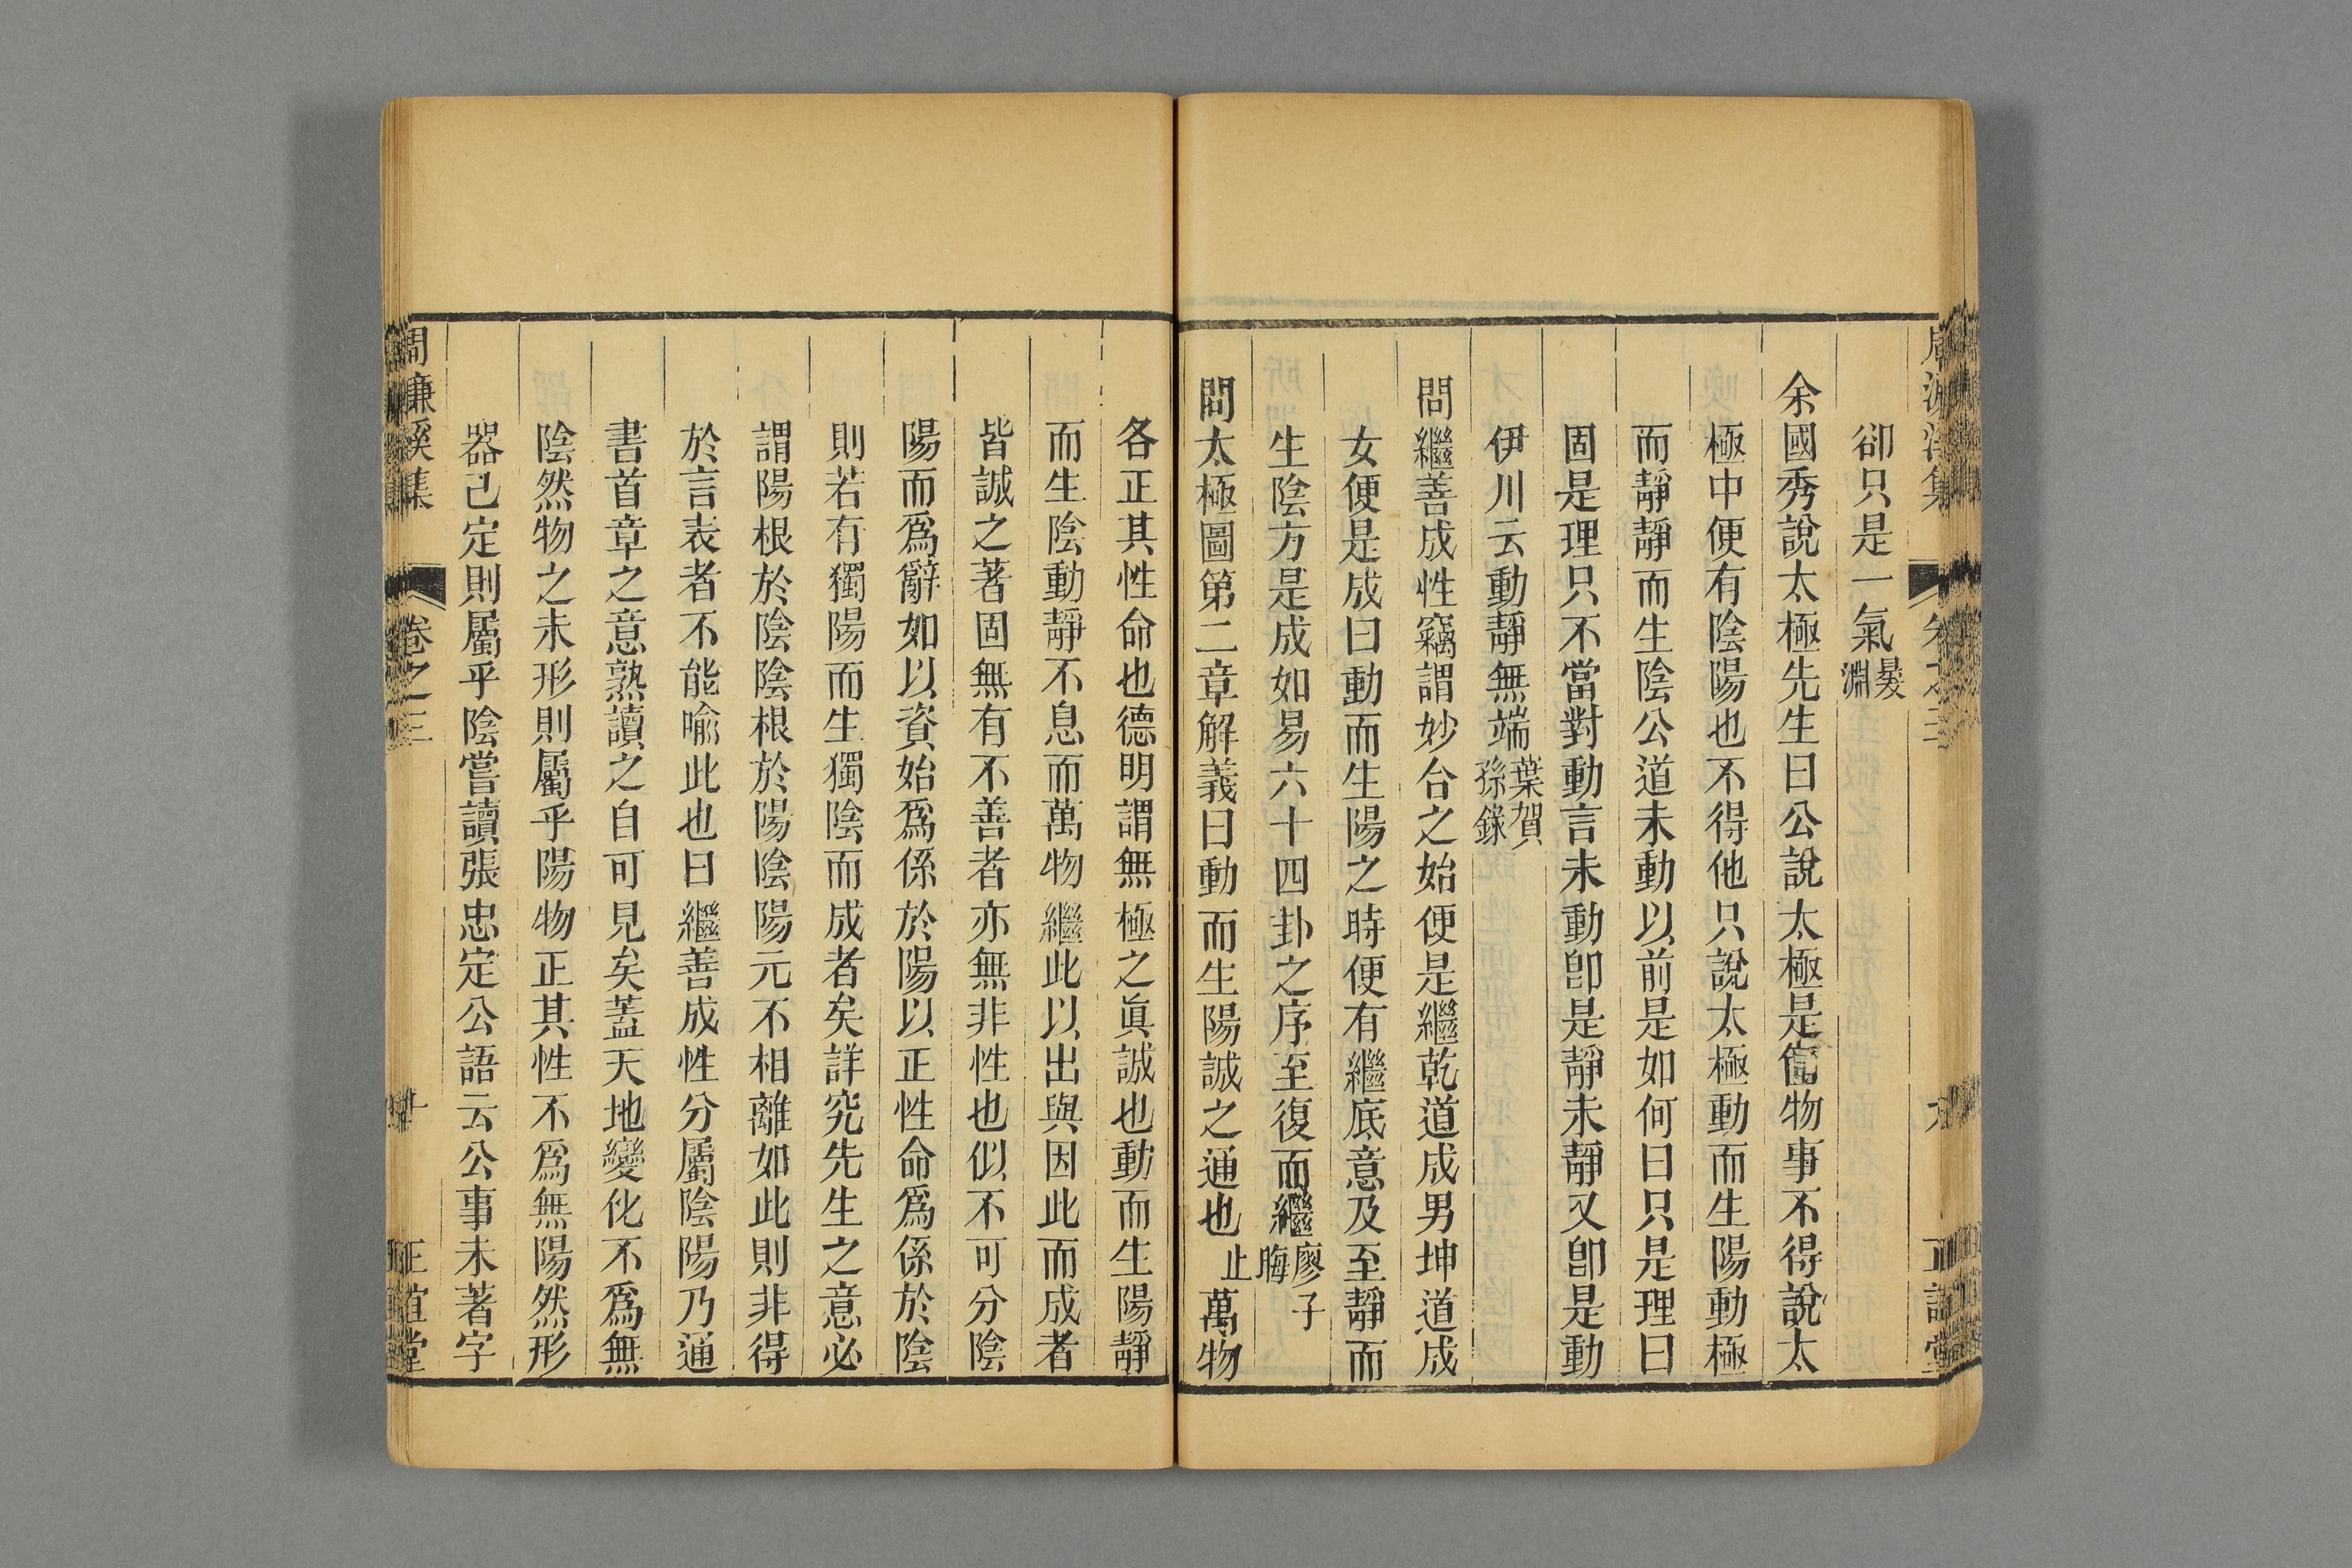 卻只是一氣㬊淵
余國秀說太極先生曰公說太極是箇物事不得說太
極中便有陰陽也不得他只說太極動而生陽動極
而靜靜而生陰公道未動以前是如何曰只是理曰
固是理只不當對動言未動卽是靜未靜又卽是動
伊川云動靜無端葉賀孫錄
問繼善成性竊謂妙合之始便是繼乾道成男坤道成
女便是成曰動而生陽之時便有繼底意及至靜而
生陰方是成如易六十四卦之序至復而繼廖子晦
問太極圖第二章解義曰動而生陽誠之通也止萬物
各正其性命也德明謂無極之眞誠也動而生陽靜
而生陰動靜不息而萬物繼此以出與因此而成者
皆誠之著固無有不善者亦無非性也似不可分陰
陽而爲辭如以資始爲係於陽以正性命爲係於陰
則若有獨陽而生獨陰而成者矣詳究先生之意必
謂陽根於陰陰根於陽陰陽元不相離如此則非得
於言表者不能喻此也曰繼善成性分屬陰陽乃通
書首章之意熟讀之自可見矣蓋天地變化不爲無
陰然物之未形則屬乎陽物正其性不爲無陽然形
器已定則屬乎陰嘗讀張忠定公語云公事未著字
周濂溪集 卷之三 十 正誼堂